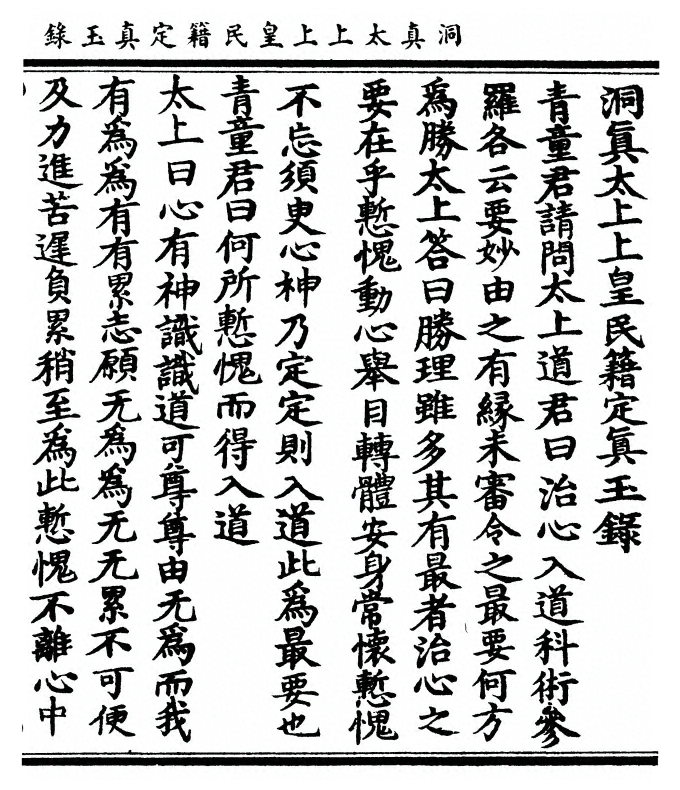 洞真太上上皇民籍定真玉錄
洞真太上上皇民籍定真玉錄
青童君請問太上道君曰治心入道科術參
羅各云要妙由之有緣未審令之最要何方
爲勝太上答曰勝理雖多其有最者治心之
要在乎慙愧動心舉目轉體安身常懷慙愧
不忘須臾心神乃定定則入道此爲最要也
青童君曰何所慙愧而得入道
太上曰心有神識識道可尊尊由无爲而我
有爲爲有有累志願无爲爲无无累不可便
及力進苦遲負累稍至爲此慙愧不離心中